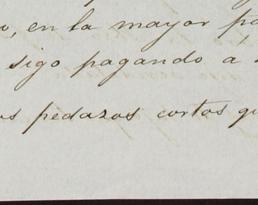 en la mayor
sigo pagando a
pedazos cortos